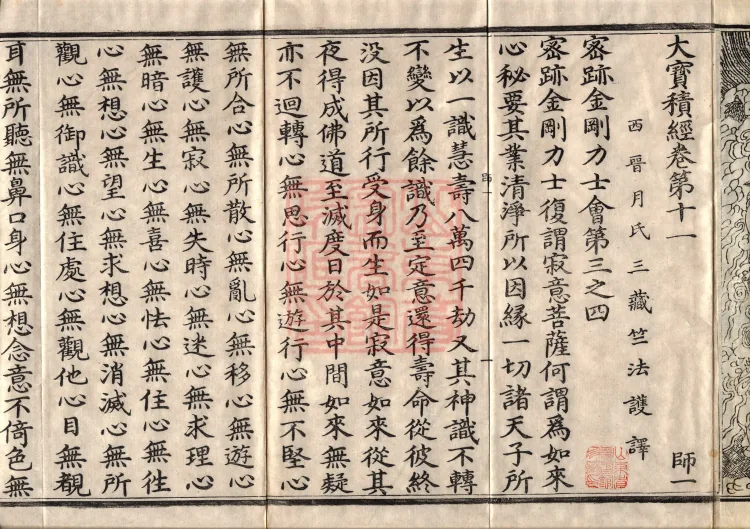 大寶積經卷第十一 師一
西晉月氏三藏竺法護譯
密跡金剛力士會第三之四
密跡金剛力士復謂寂意菩薩何謂為如來
心秘要其業清淨所以因緣一切諸天子所
生以一識慧壽八萬四千劫又其神識不轉
不變以爲餘識乃至定意還得壽命從彼終
没因其所行受身而生如是寂意如來從其
夜得成佛道至滅度日於其中間如來無疑
亦不迴轉心無思行心無遊行心無不堅心
無所合心無所散心無亂心無移心無遊心
無護心無寂心無失時心無迷心無求理心
無暗心無生心無喜心無怯心無住心無往
心無想心無望心無求想心無消滅心無所
觀心無御識心無住處心無觀他心目無覩
耳無所聽無鼻口身心無想念意不倚色無